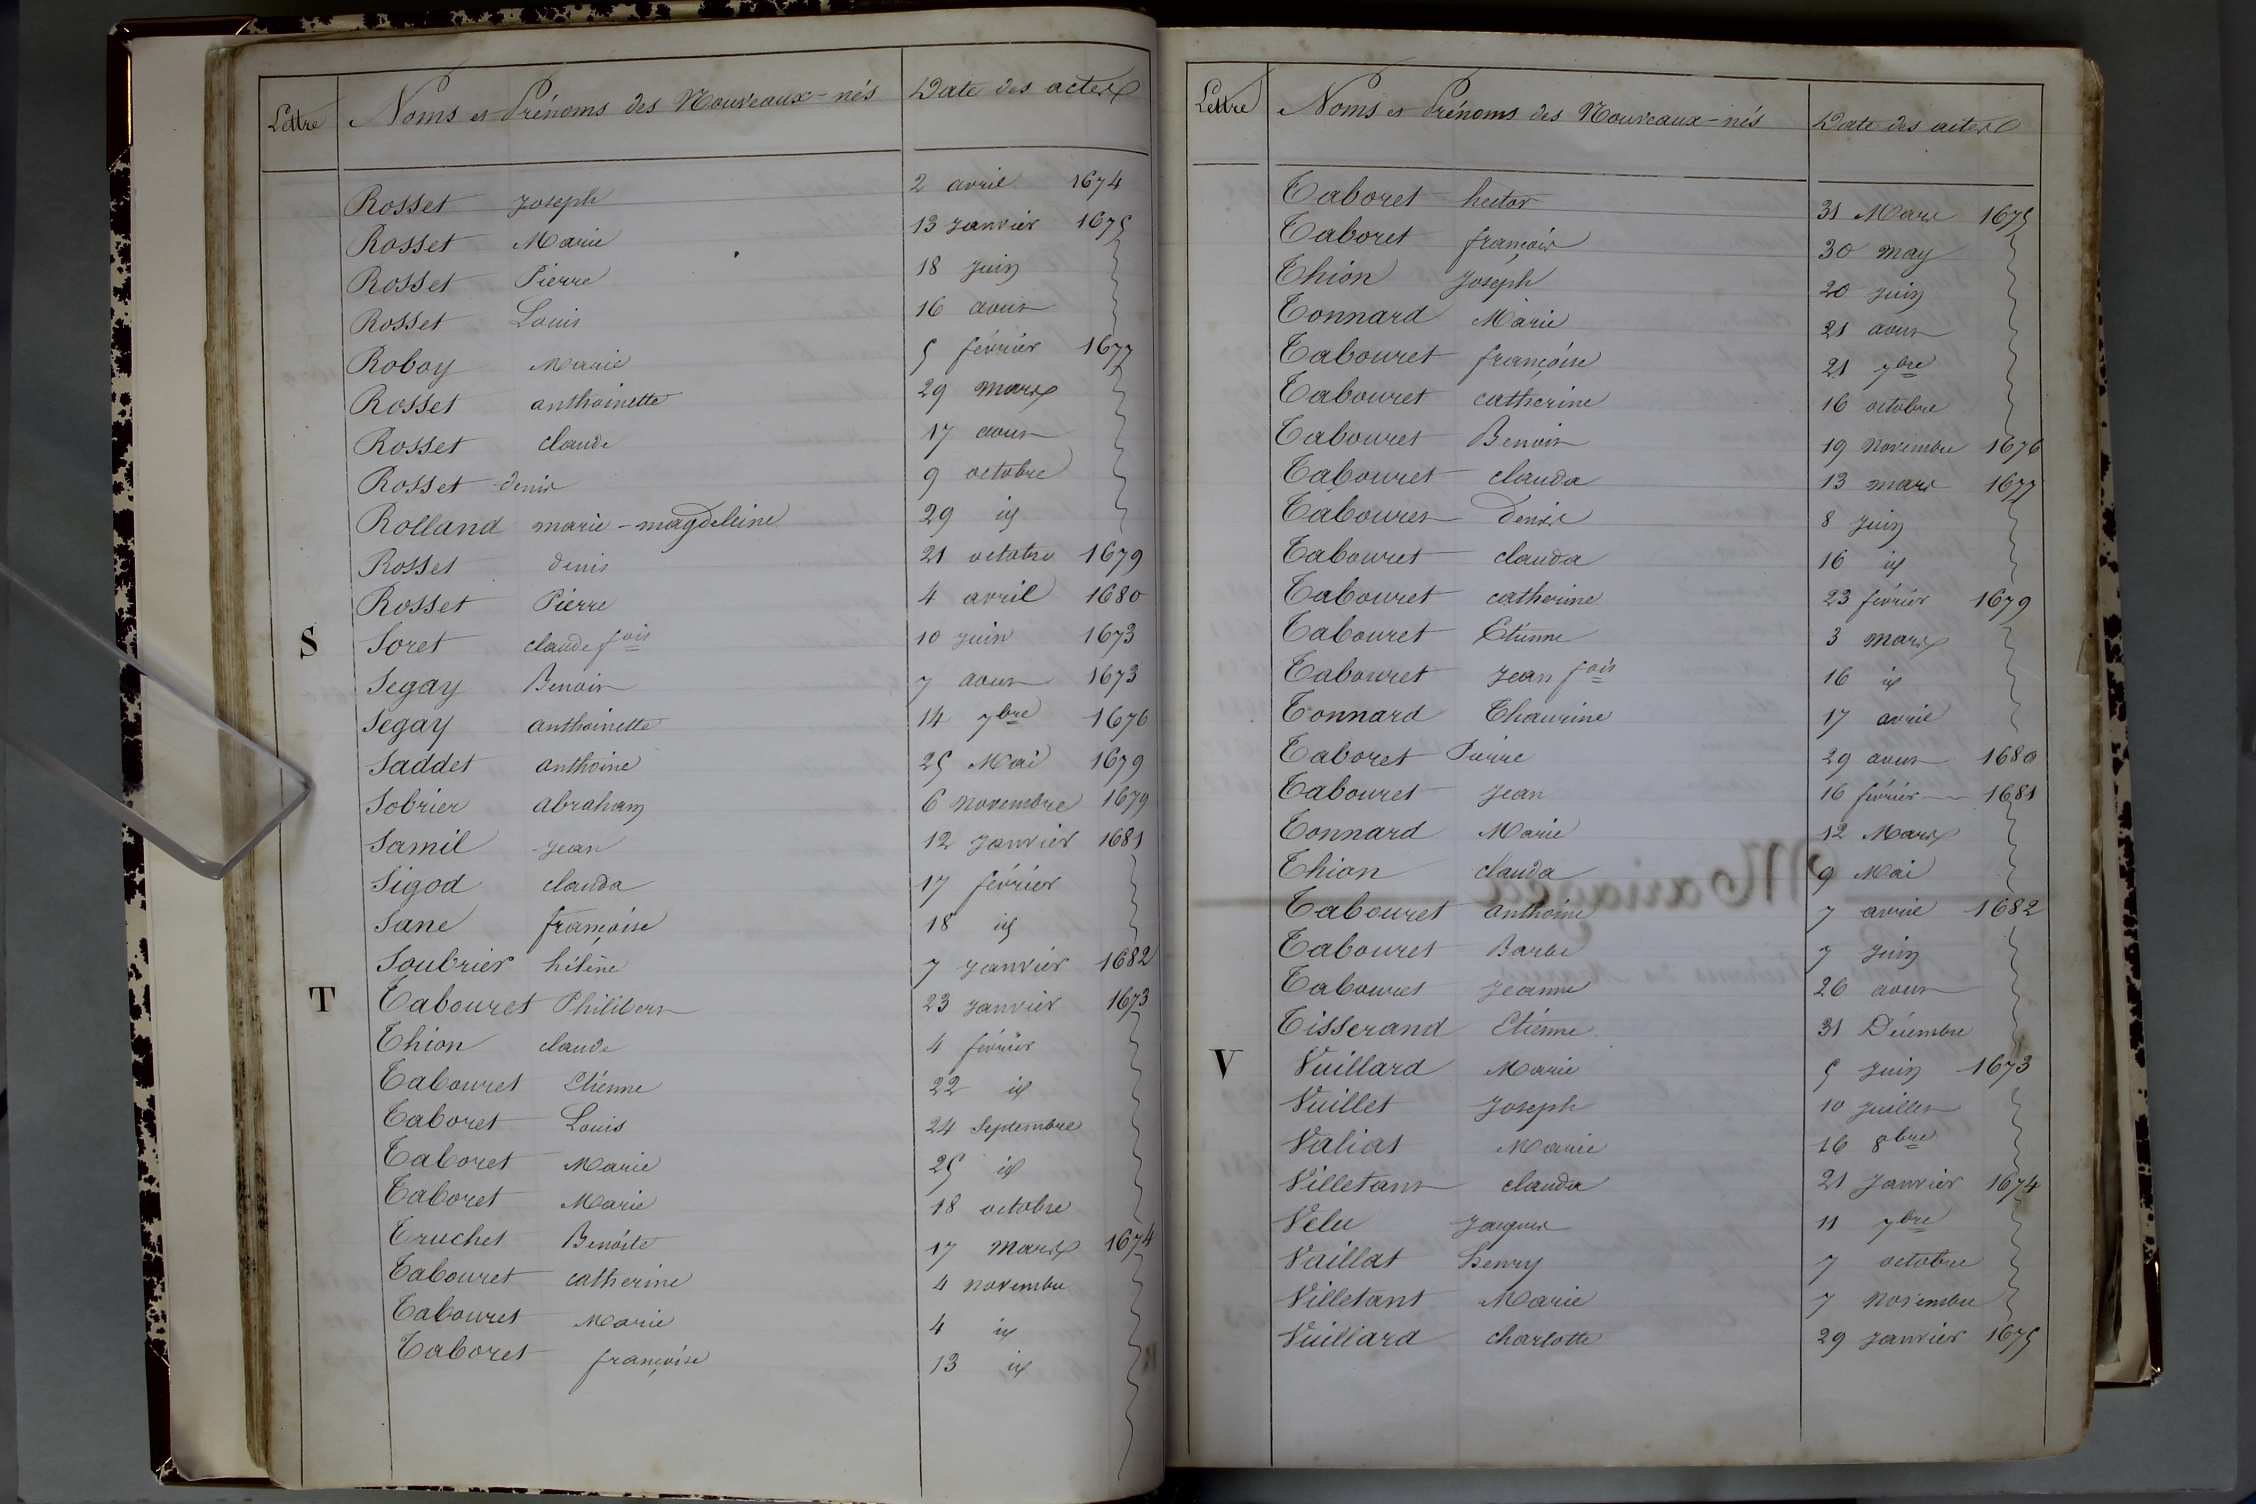 Lettre Noms et Prénoms des Nouveaux-nés Date des actes
Rosset Joseph 2 avril 1674
Rosset Marie 13 Janvier 1675
Rosset Pierre 18 Juin
Rosset Louis 16 aout
Roboy Marie 5 février 1677
Rosset anthoinette 29 mars
Rosset claude 17 aout
Rosset denis 9 octobre
Rolland marie-magdeleine 29 id
Rosset denis 21 octobre 1679
Rosset Pierre 4 avril 1680
S Soret claude fois 10 Juin 1673
Segay Benoit 7 aout 1673
Segay anthoinette 14 7bre 1676
Saddet anthoine 25 Mai 1679
Sobrier abraham 6 Novembre 1679
Samil Jean 12 Janvier 1681
Sigod clauda 17 février
Sane françoise 18 id
Soubrier hélène 7 Janvier 1682
T Tabouret Philibert 23 Janvier 1673
Thion claude 4 février
Tabouret Etienne 22 id
Taboret Louis 24 Septembre
Taboret Marie 25 id
Taboret Marie 18 octobre
Truchet Benoite 17 Mars 1674
Tabouret catherine 4 Novembre
Tabouret Marie 4 id
Taboret françoise 13 id
Lettre Noms et Prénoms des Nouveaux-nés Date des actes
Taboret hector 31 Mars 1675
Taboret françois 30 May
Thion Joseph 20 Juin
Tonnard Marie 21 aout
Tabouret françoise 21 7bre
Tabouret catherine 16 octobre
Tabouret Benoit 19 Novembre 1676
Tabouret clauda 13 mars 1677
Tabouret Denis 8 Juin
Tabouret clauda 16 id
Tabouret catherine 23 février 1679
Tabouret Etienne 3 Mars
Tabouret Jean fois 16 id
Tonnard Thaurine 17 avril
Taboret Pierre 29 aout 1680
Tabouret Jean 16 février 1681
Tonnard Marie 12 Mars
Thion clauda 9 Mai
Tabouret anthoine 7 avril 1682
Tabouret Barbe 7 Juin
Tabouret Jeanne 26 aout
Tisserand Etienne 31 Décembre
V Vuillard Marie 5 Juin 1673
Vuillet Joseph 10 Juillet
Valiat Marie 16 8bre
Villetant clauda 21 Janvier 1674
Velu Jacques 11 7bre
Vaillat henry 7 octobre
Villetant Marie 7 Novembre
Vuillard charlotte 29 Janvier 1675